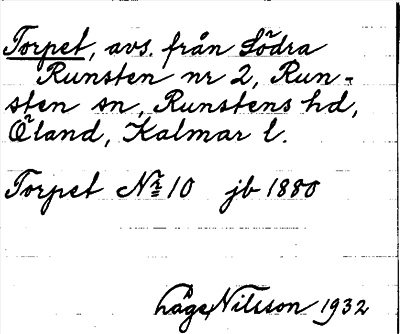 Torpet, avs. från Södra
Runsten nr 2, Run-
sten sn, Runstens hd,
Öland, Kalmar l.
Torpet Nr 10 jb 1880
Låge Nilsson 1932